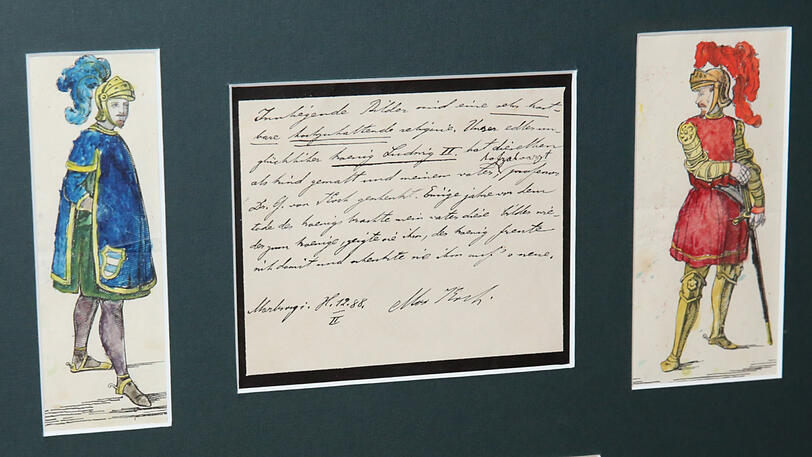 Innliegende Bilder sind eine sehr kost-
bare hochzuhaltende religuie. Unser edler un-
glücklicher koenig Ludwig II. hat dieselben
hofzahnarzt
als kind gemalt und meinem vater, professor
Dr. G. von Koch geschenkt. Einige jahre vor dem
tode des koenigs brachte mein vater diese bilder wie-
der zum koenige, zeigte sie ihm, der koenig freute
sich damit und schenkte sie ihm auf's neue.
Marburg i. H. 12. 88. Max Koch.
II